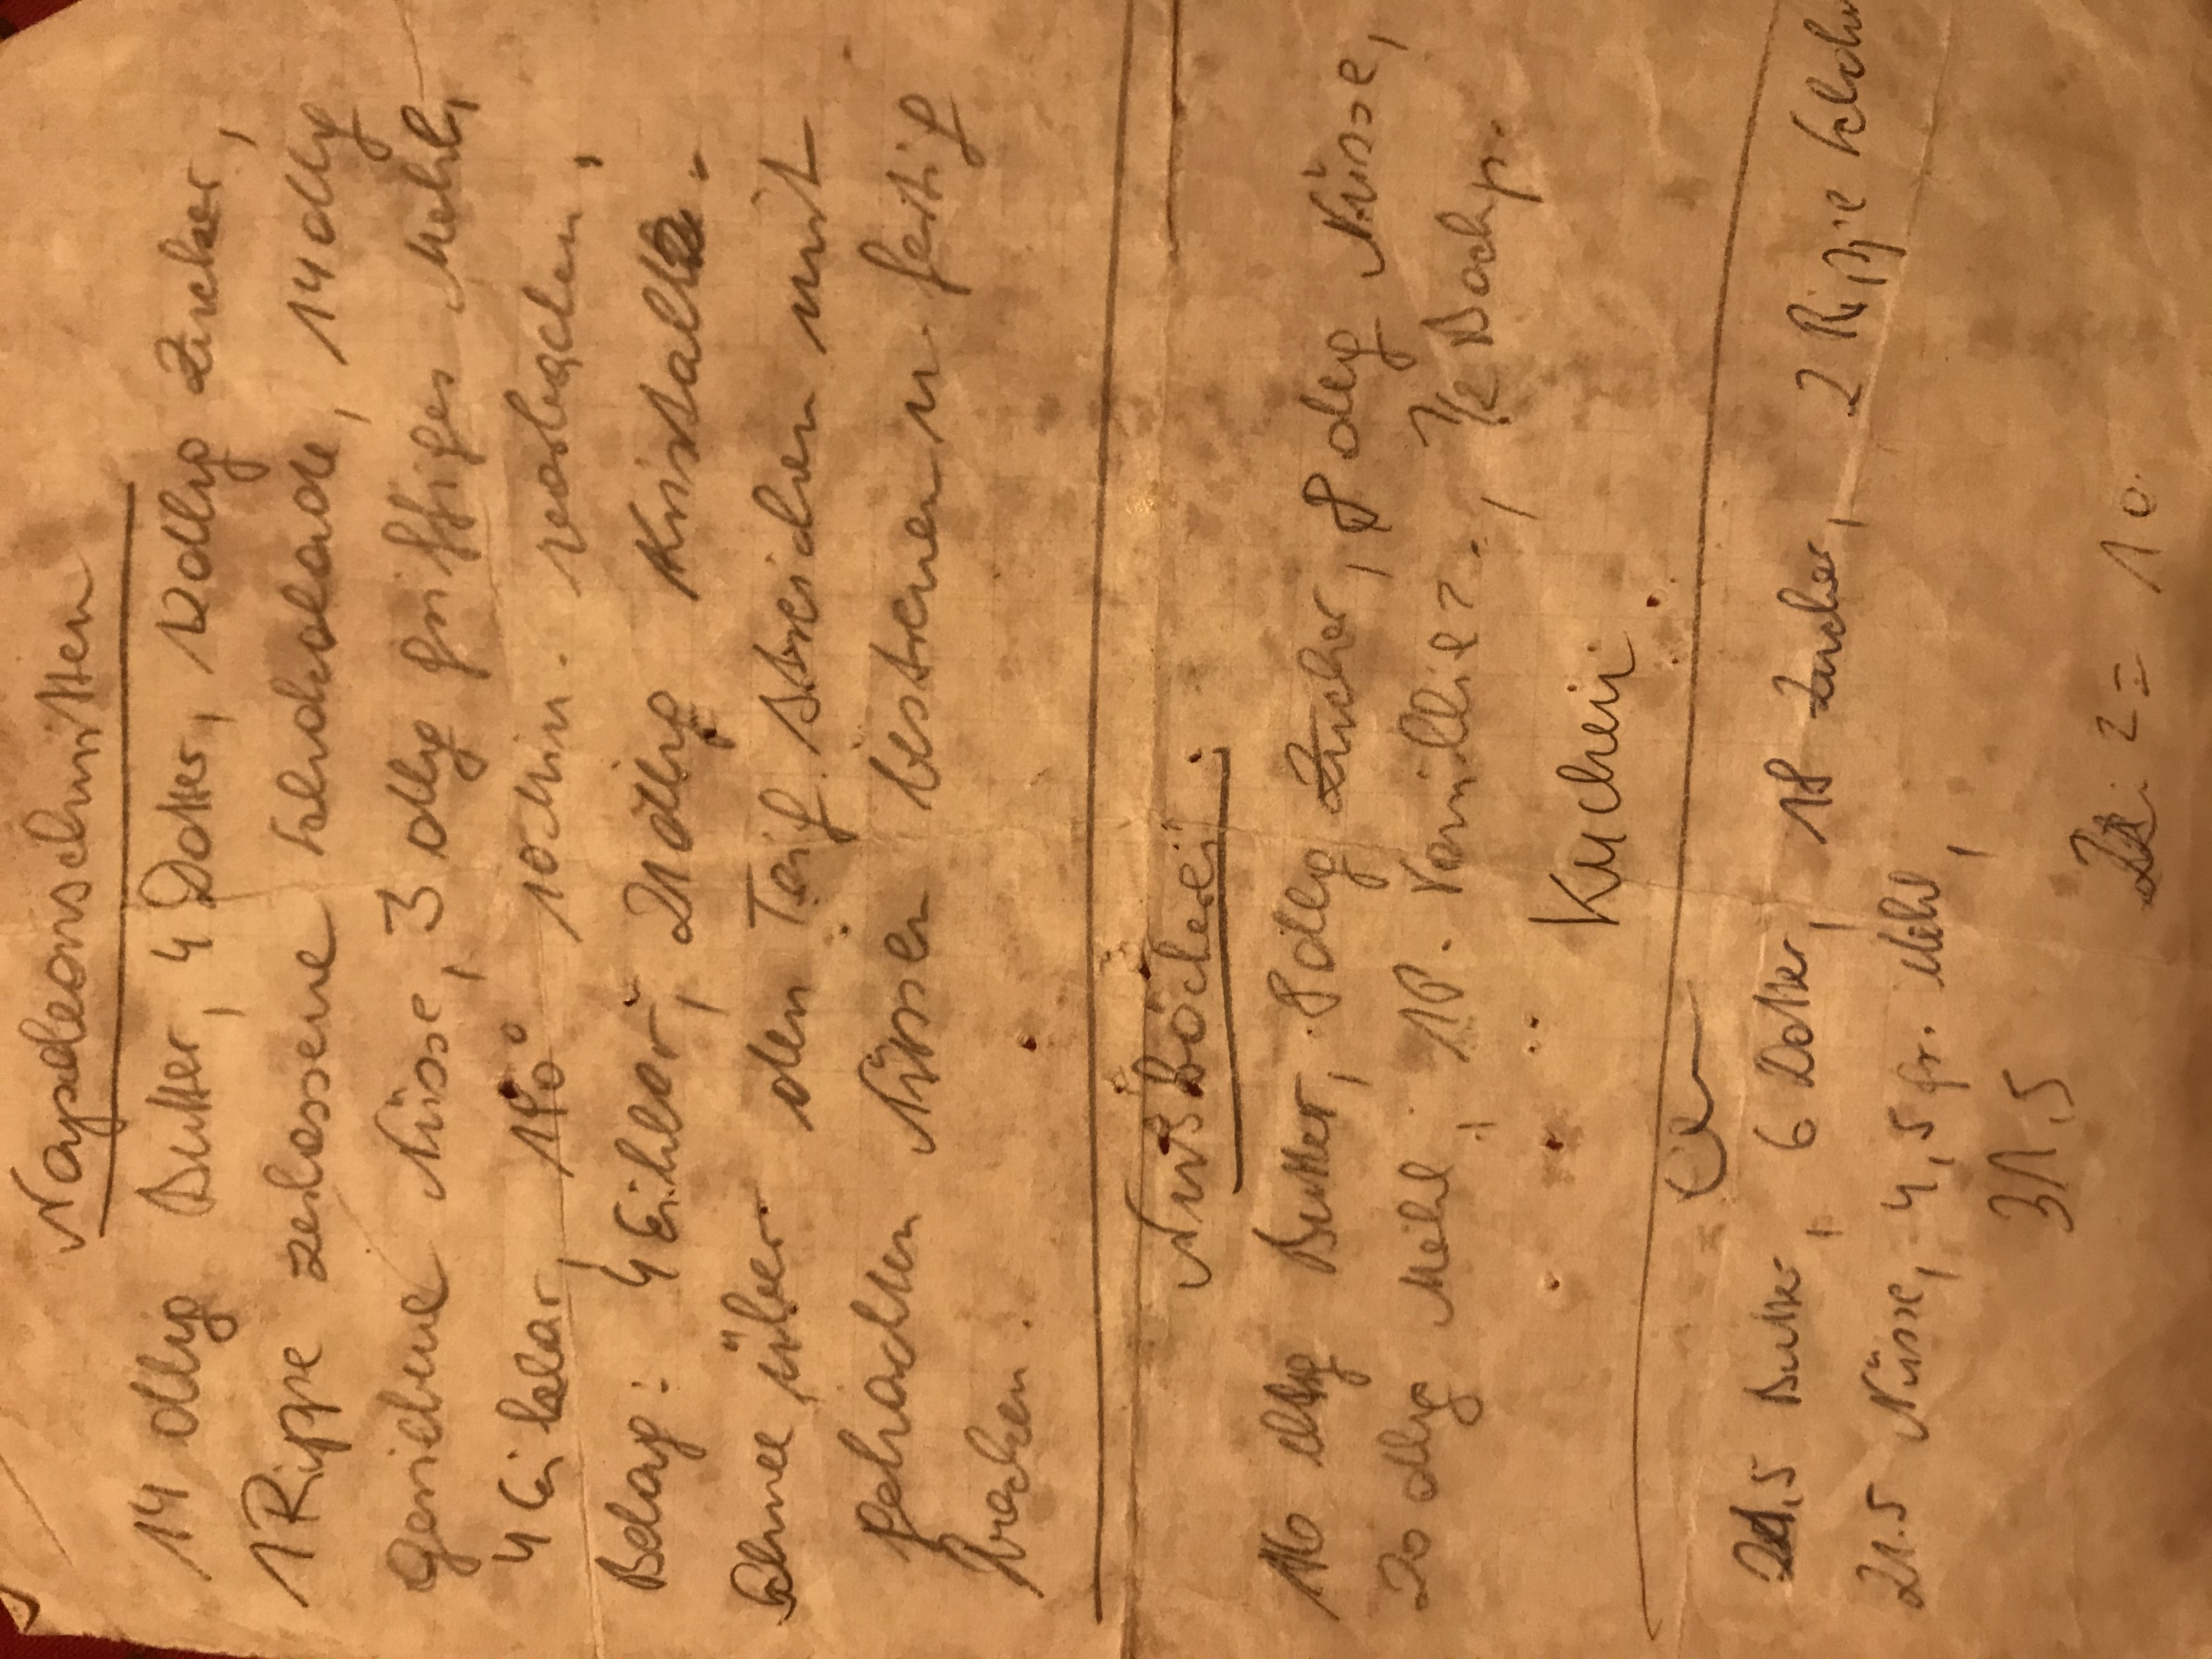 Napoleonschnitten
14 dkg Butter, 4 Dotter, 12 dkg Zucker,
1 Rippe zerlassene Schokolade, 14 dkg
geriebene Nüsse, 3 dkg griffiges Mehl,
4 Eiklar, 10 Min. vorbacken,
Belag: 4 Eiklar, 21 dkg Kristallz.
Schnee über den Teig streichen mit
gehackten Nüssen bestreuen u. fertig
backen.
Nußbäckerei:
16 dkg Butter, 8 dkg Zucker, 8 dkg Nüsse,
20 dkg Mehl, 1 P. Vanilliez., 1/2 Backp.
Kuchen
21,5 Butter, 6 Dotter, 18 Zucker, 2 Rippe Schoko
21.5 Nüsse, 4,5 gr. Mehl,
31,5
: 2 = 10